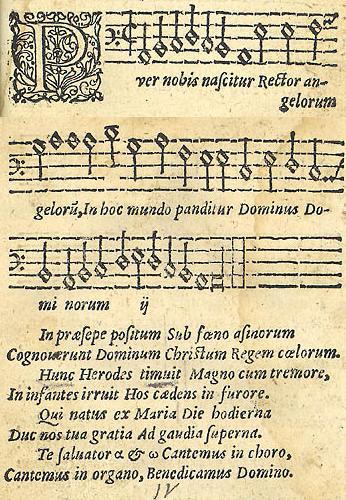 P
ver nobis naſcitur Rector an-
gelorum
gelorū, In hoc mundo panditur Dominus Do-
mi norum ij
In præſepe poſitum Sub fœno aſinorum
Cognouerunt Dominum Chriſtum Regem cœlorum.
Hunc Herodes timuit Magno cum tremore,
In infantes irruit Hos cædens in furore.
Qui natus ex Maria Die hodierna
Duc nos tua gratia Ad gaudia ſuperna.
Te ſaluator α & ω Cantemus in choro,
Cantemus in organo, Benedicamus Domino.
IV